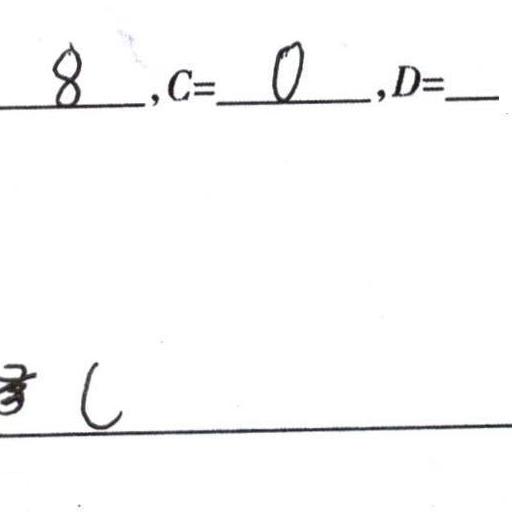 8 , C= 0 , D=
C